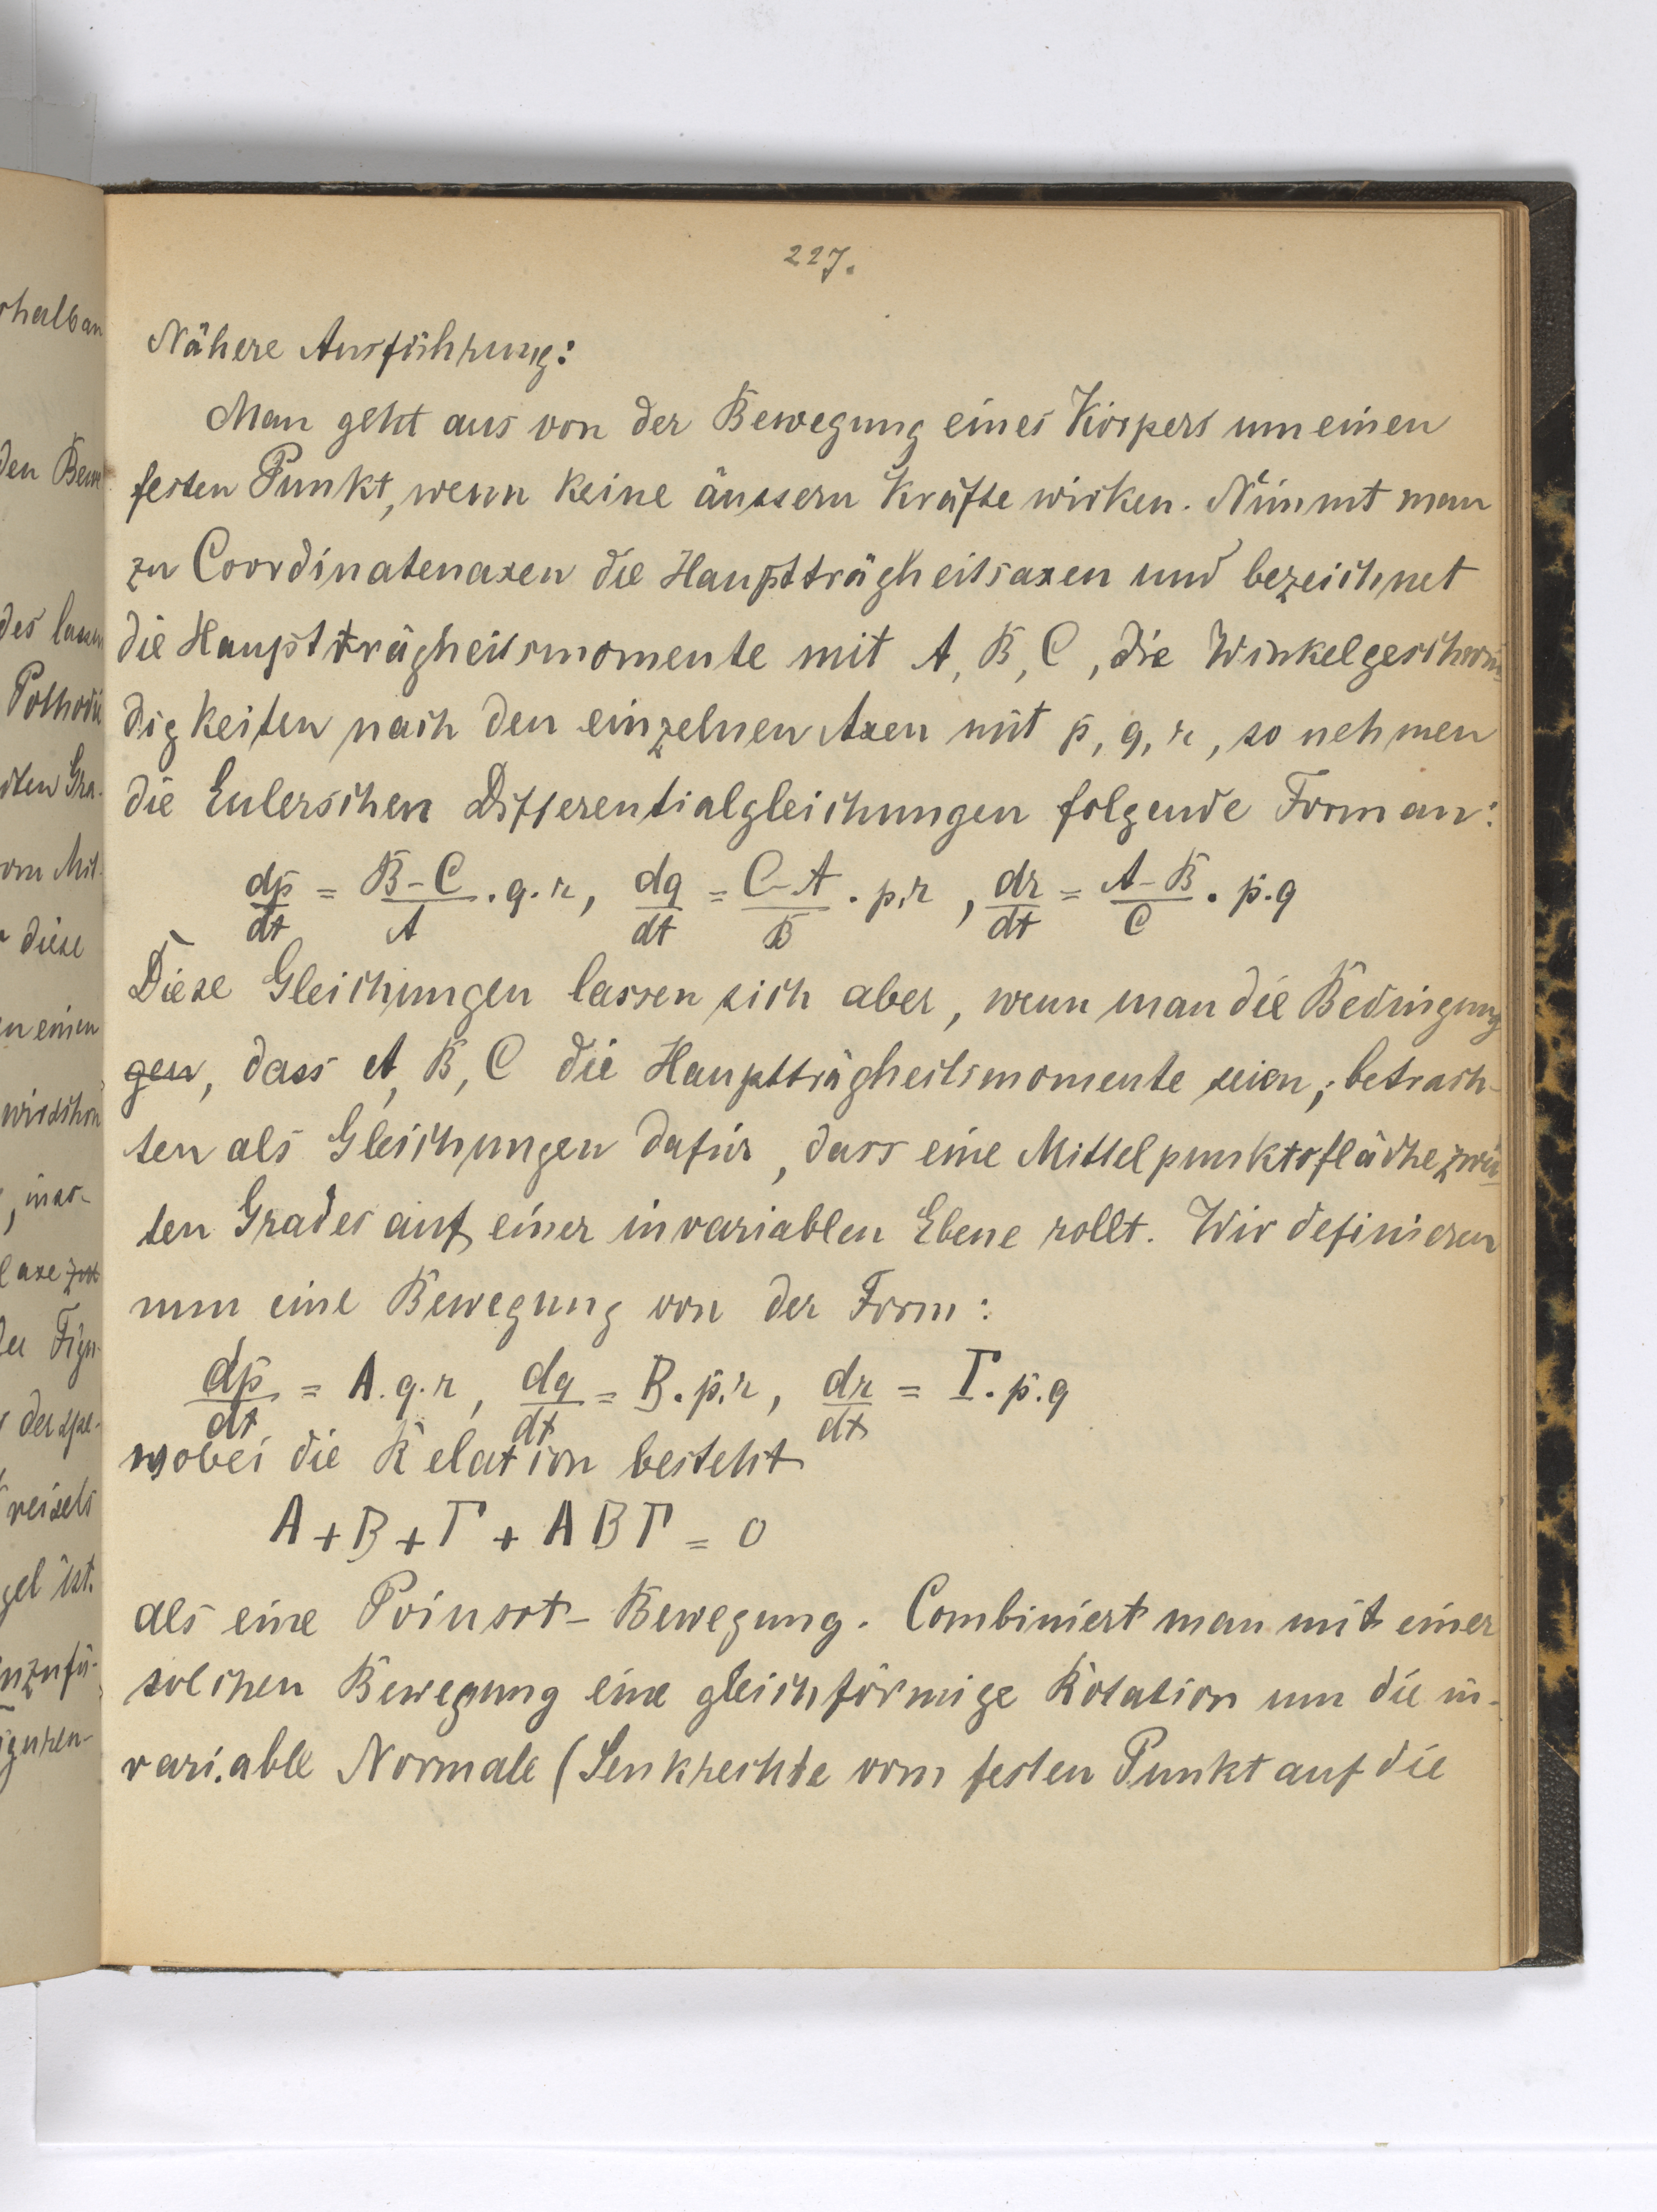 227.
Nähere Ausführung:
Man geht aus von der Bewegung eines Körpers um einen
festen Punkt, wenn keine äussern Kräfte wirken. Nimmt man
zu Coordinatenaxen die Hauptträgheitsaxen und bezeichnet
die Hauptträgheitsmomente mit A, B, C, die Winkelgeschwin
digkeiten nach den einzelnen Axen mit p, q, r, so nehmen
die Eulerschen Differentialgleichungen folgende Form an:
dp/dt = (B-C)/A . q. r, dq/dt = (C-A)/B . p.r , dr/dt = (A-B)/C . p.q
Diese Gleichungen lassen sich aber, wenn man die Bedingung
gen, dass A, B, C die Hauptträgheitsmomente seien, betrach-
ten als Gleichungen dafür, dass eine Mittelpunktsfläche zwei
ten Grades auf einer invariablen Ebene rollt. Wir definieren
nun eine Bewegung von der Form:
dp/dt = Α. q. r, dq/dt = Β. p.r, dr/dt = Γ. p.q
wobei die Relation besteht
Α + Β + Γ + Α Β Γ = 0
als eine Poinsot-Bewegung. Combiniert man mit einer
solchen Bewegung eine gleichförmige Rotation um die in-
variable Normale (Senkrechte vom festen Punkt auf die
rhalb an
den Bew
des lassen
Polhodie
dten Gra-
om Mit-
diese
en einen
wir schon
, inso-
l axe
der Figu-
der spe-
Kreisels
gel ist.
nzufü-
iguren-